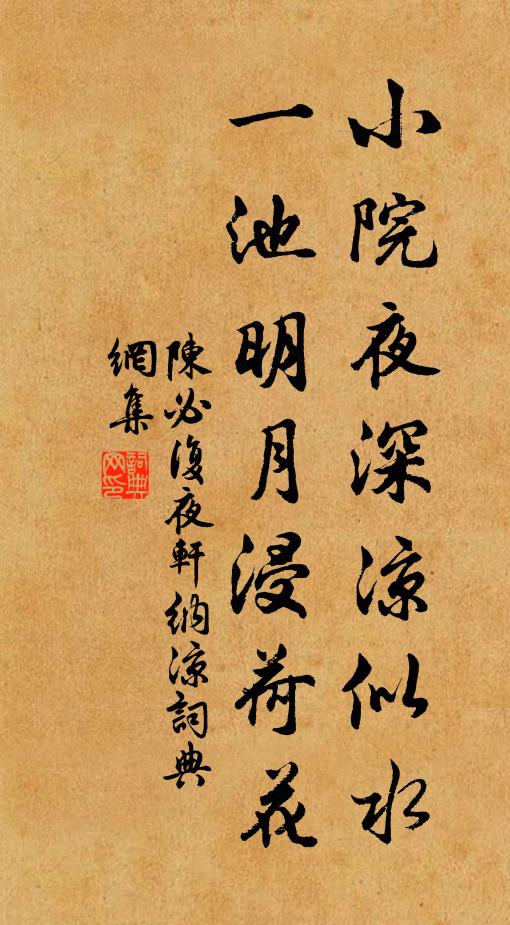 小院夜深凉似水
一池明月浸荷花
陳必復夜軒納凉詞典
網集
詞典網印